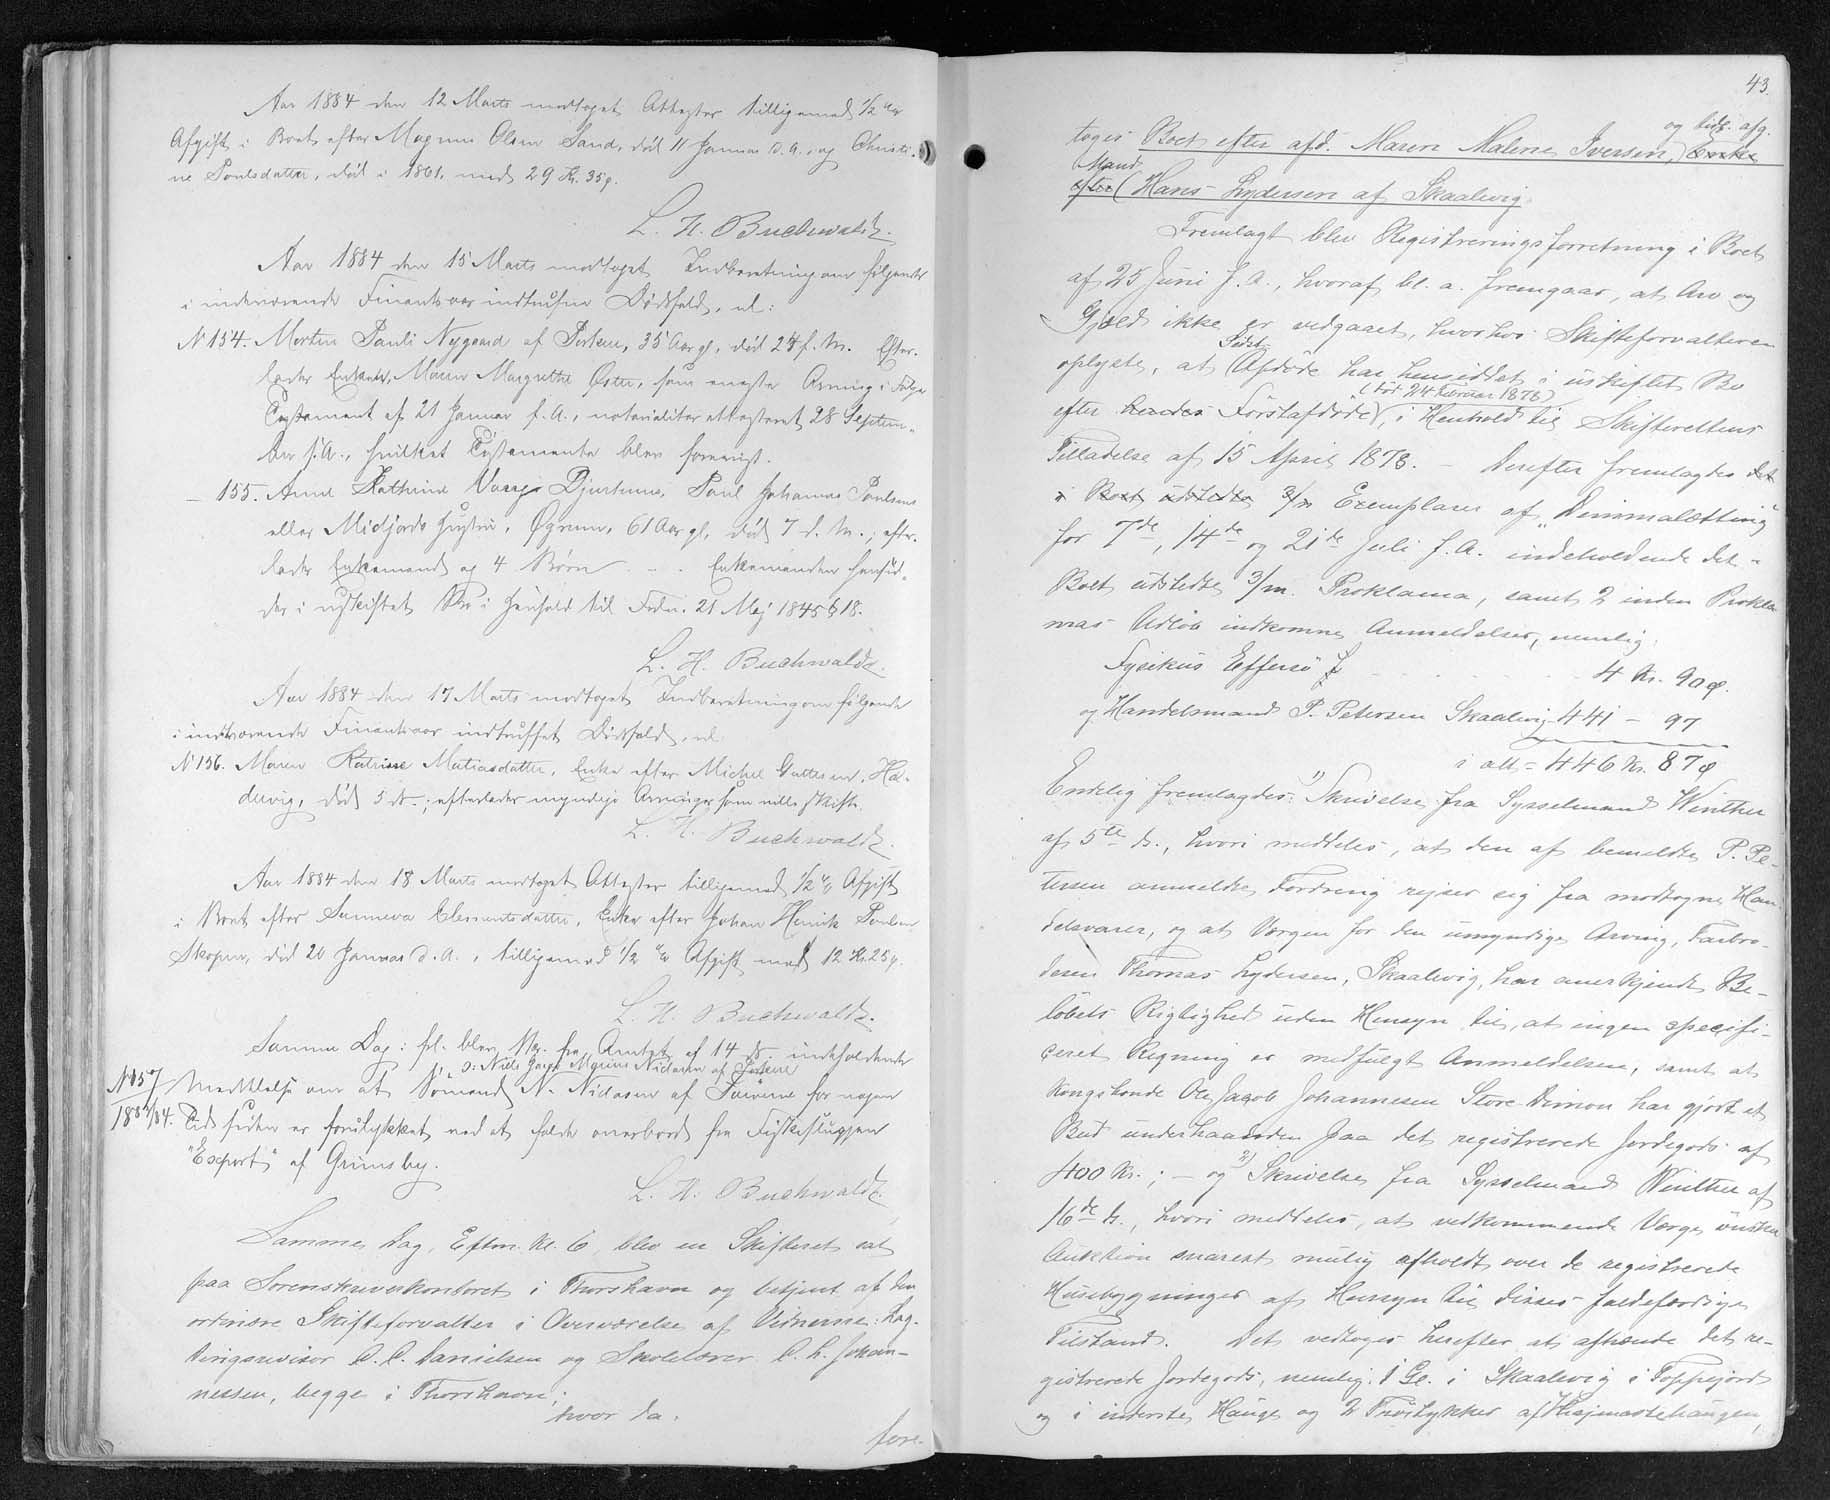 Aar 1884 den 12 Marts modtoges Attester tilligemed 1/2 %
Afgift i Boet efter Magnus Olsen Sand, død 11 Januar d. A. og Christi-
ne Poulsdatter, død i 1861, med 29 Kr. 35 ø.
L. H. Buchwaldt.
Aar 1884 den 15 Marts modtoges Indberetning om følgende
i indeværende Finantsaar indtrufne Dødsfald, nl:
N 154. Morten Pauli Nygaard af Porkere, 35 Aar gl., død f. M. Efter-
lader Enken, Maren Margrethe Øster, som eneste Arving i Følge
Testament af 21 Januar f. A., notorialiter attesteret 28 Septem-
ber f. A., hvilket Testamente blev forevist.
— 155. Anne Kathrine Djurhuus, Poul Johannes Poulsens
eller Midjords Hustru, 61 Aar gl., død 7 d. M.; efter-
lader Enkemand og 4 Børn - - . Enkemanden hensid-
der i uskiftet Bo i Henhold til Frdn. 21 Maj 1845 § 18.
L. H. Buchwaldt.
Aar 1884 den 17 Marts modtoges Indberetning om følgende
i indeværende Finantsaar indtruffet Dødsfald, nl
N 156. Maren Katrine Matiasdatter, Enke efter Michel Guttesen, Hal-
dervig, død 5 ds.; efterlader myndige Arvinger som ville skifte.
L. H. Buchwaldt.
Aar 1884 den 18 Marts modtoges Attester tilligemed 1/2 % Afgift
i Boet efter Sunneva Clementsdatter, Enke efter Johan Henrik Poulsen
Skopen, død 20 Januar d. A., tilligemed 1/2 % Afgift med 12 Kr. 25 ø.
L. H. Buchwaldt.
Samme Dag: fl. blev fra Amtet af 14 ds. indeholdende
ɔ: Niels Nielsen af Porkere
N 157 Meddelelse om at Sømand N. Nielsen af Færøerne for nogen
1883/84. Tid siden er forulykket ved at falde overbord fra Fiskesluppen
"Export" af Grimsby.
L. H. Buchwaldt.
Samme Dag, Eftm. Kl. 6, blev en Skifteret sat
paa Sorenskriverkontoret i Thorshavn og betjent af den
ordinære Skifteforvalter i Overværelse af Vidnerne: Lag-
tingsrevisor Danielsen og Skolelærer Johan-
nessen, begge i Thorshavn;
hvor da:
fore-
43.
og tidl. afg.
toges Boet efter afd. Maren Malene Iversen, Enke
Mand
efter Hans Lydersen af Skaalevig.
Fremlagt blev Registreringsforretning i Boet
af 25 Juni f. A., hvoraf bl. a. fremgaar, at Arv og
Gjæld ikke er vedgaaet, hvorhos Skifteforvalteren
Sidst
oplyste, at Afdøde har hensiddet i uskiftet Bo
(død 24 Februar 1878)
efter hendes Førstafdøde, i Henhold til Skifterettens
Tilladelse af 15 April 1878. — Derefter fremlagdes det
i Boet udstedte 3/m Exemplarer af "Dimmalætting"
for 7de, 14de og 21de Juli f. A. indeholdende det i
Boet udstedte 3/m. Proklama, samt 2 inden Prokla-
mas Udløb indkomne Anmeldelser, nemlig:
Fysikus Effersø f. - - - - - 4 Kr. 90 ø.
og Handelsmand P. Petersen Skaalevig 441 - 97
i alt = 446 Kr. 87 ø
Endelig fremlagdes: 1) Skrivelse fra Sysselmand Winther
af 5te ds., hvori meddeles, at den af bemeldte P. Pe-
tersen anmeldte Fordring rejser sig fra modtagne Han-
delsvarer, og at Værgen for den umyndige Arving, Farbro-
deren Thomas Lydersen, Skaalevig, har anerkjendt Be-
løbets Rigtighed uden Hensyn til, at ingen specifi-
ceret Regning er medfulgt Anmeldelsen, samt at
Kongsbonde Ole Jacob Johannesen Store Dimon har gjort et
Bud underhaanden paa det registrerede Jordegods af
400 Kr.; — og 2) Skrivelse fra Sysselmand Winther af
16de ds., hvori meddeles, at vedkommende Værge ønsker
Auktion snarest mulig afholdt over de registrerede
Husebygninger af Hensyn til disses faldefærdige
Tilstand. Det vedtoges herefter at afhænde det re-
gistrerede Jordegods, nemlig: 1 Gl. i Skaalevig i Toppejord
og i inderste Hauge og 2 Trøstykker af